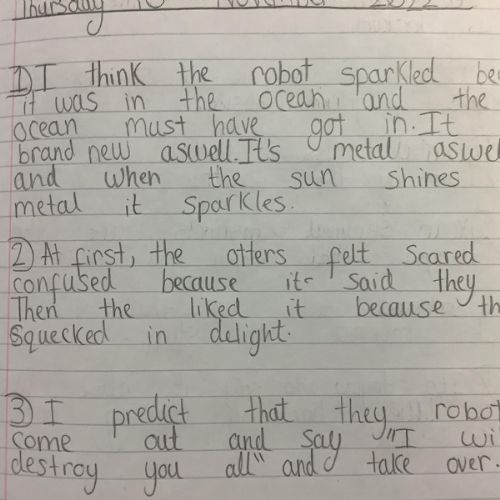 Thursday 10 November 2022
1) I think the robot sparkled bec
it was in the ocean and the
ocean must have got in. It
brand new aswell. It's metal aswel
and when the sun shines
metal it sparkles.
2) At first, the otters felt scared
confused because it said they
Then the liked it because th
squecked in delight.
3) I predict that they robot
come out and say "I wi
destroy you all" and take over.